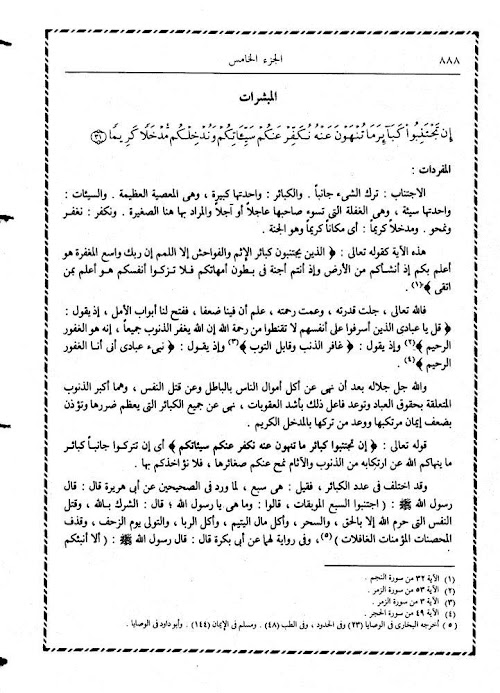 ٨٨٨
الجزء الخامس
المبشرات
إِن تَجْتَنِبُوا۟ كَبَآئِرَ مَا تُنْهَوْنَ عَنْهُ نُكَفِّرْ عَنكُمْ سَيِّـَٔاتِكُمْ وَنُدْخِلْكُم مُّدْخَلًا كَرِيمًا ﴿٣١﴾
المفردات :
الاجتناب : ترك الشىء جانباً . والكبائر : واحدتها كبيرة ، وهى المعصية العظيمة . والسيئات :
واحدتها سيئة ، وهى الغفلة التى تسوء صاحبها عاجلاً أو آجلاً والمراد بها هنا الصغيرة . ونكفر : نغفر
ونمحو . ومدخلاً كريماً : أى مكاناً كريماً وهو الجنة .
هذه الآية كقوله تعالى : ﴿ الذين يجتنبون كبائر الإثم والفواحش إلا اللمم إن ربك واسع المغفرة هو
أعلم بكم إذ أنشأكم من الأرض وإذ أنتم أجنة فى بطون أمهاتكم فلا تزكوا أنفسكم هو أعلم بمن
اتقى ﴾(١) .
فالله تعالى ، جلت قدرته ، وعمت رحمته ، علم أن فينا ضعفا ، ففتح لنا أبواب الأمل ، إذ يقول :
﴿ قل يا عبادى الذين أسرفوا على أنفسهم لا تقنطوا من رحمة الله إن الله يغفر الذنوب جميعاً ، إنه هو الغفور
الرحيم ﴾(٢) وإذ يقول : ﴿ غافر الذنب وقابل التوب ﴾(٣) وإذ يقول : ﴿ نبىء عبادى أنى أنا الغفور
الرحيم ﴾(٤) .
والله جل جلاله بعد أن نهى عن أكل أموال الناس بالباطل وعن قتل النفس ، وهما أكبر الذنوب
المتعلقة بحقوق العباد وتوعد فاعل ذلك بأشد العقوبات ، نهى عن جميع الكبائر التى يعظم ضررها وتؤذن
بضعف إيمان مرتكبها ووعد من تركها بالمدخل الكريم .
قوله تعالى : ﴿ إن تجتنبوا كبائر ما تنهون عنه نكفر عنكم سيئاتكم ﴾ أى إن تتركوا جانباً كبائر
ما ينهاكم الله عن ارتكابه من الذنوب والآثام نمح عنكم صغائرها ، فلا نؤاخذكم بها .
وقد اختلف فى عدد الكبائر ، فقيل : هى سبع ، لما ورد فى الصحيحين عن أبى هريرة قال : قال
رسول الله ﷺ : ( اجتنبوا السبع الموبقات ، قالوا : وما هى يا رسول الله ؛ قال : الشرك بالله ، وقتل
النفس التى حرم الله إلا بالحق ، والسحر ، وأكل مال اليتيم ، وأكل الربا ، والتولى يوم الزحف ، وقذف
المحصنات المؤمنات الغافلات )(٥)، وفى رواية لهما عن أبى بكرة قال : قال رسول الله ﷺ : ( ألا أنبئكم
(١) الآية ٣٢ من سورة النجم .
(٢) الآية ٥٣ من سورة الزمر .
(٣) الآية ٣ من سورة الزمر .
(٤) الآية ٤٩ من سورة الحجر .
(٥) أخرجه البخارى فى الوصايا (٢٣) وفى الحدود ، وفى الطب (٤٨) . ومسلم فى الإيمان (١٤٤) . وأبو داود فى الوصايا .